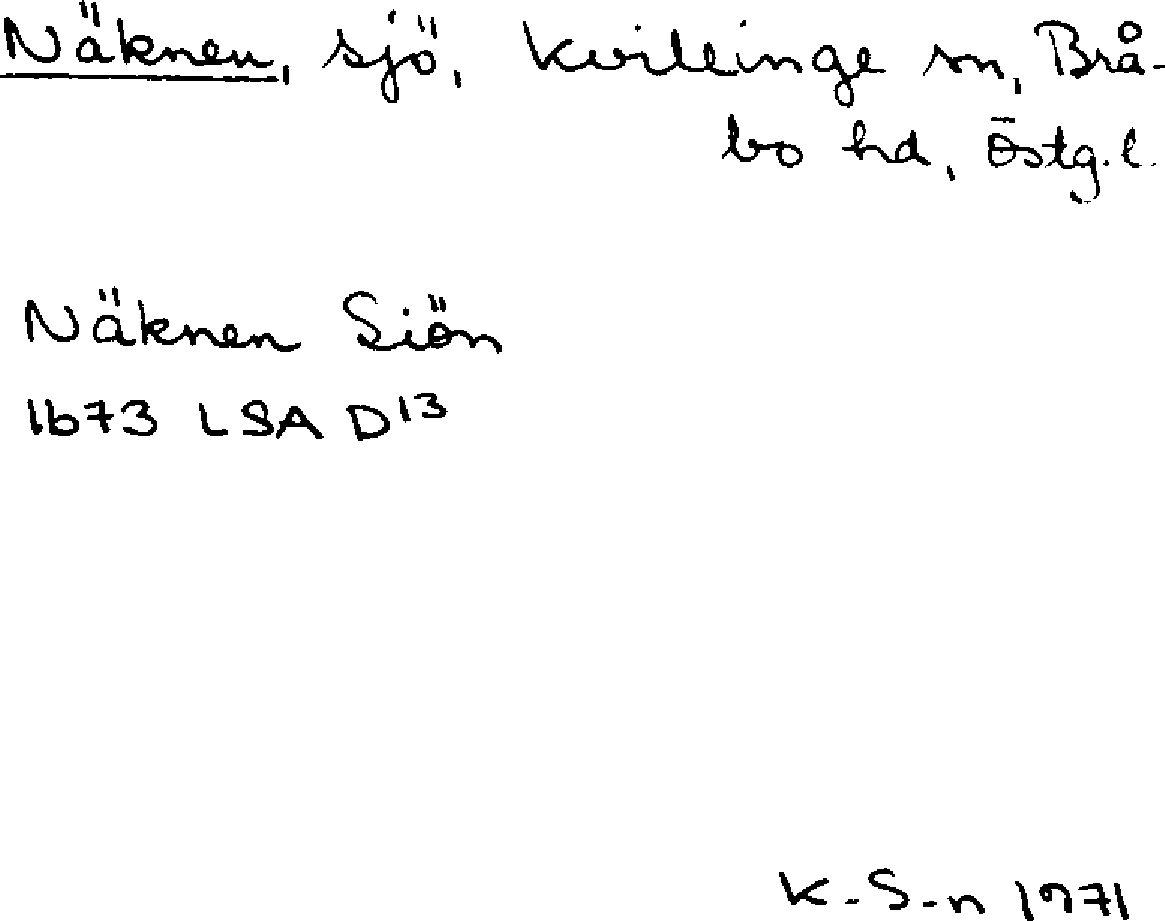 Näknen, sjö, Kvillinge sn, Brå-
bo hd, Östg.l.
Näknen Siön
1673 LSA D13
K-S-n 1971